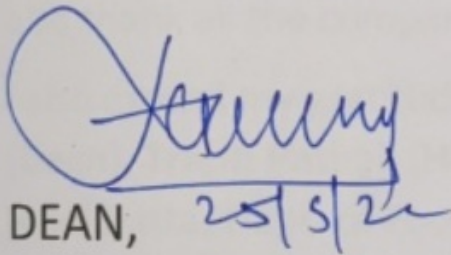 DEAN, 25/5/22